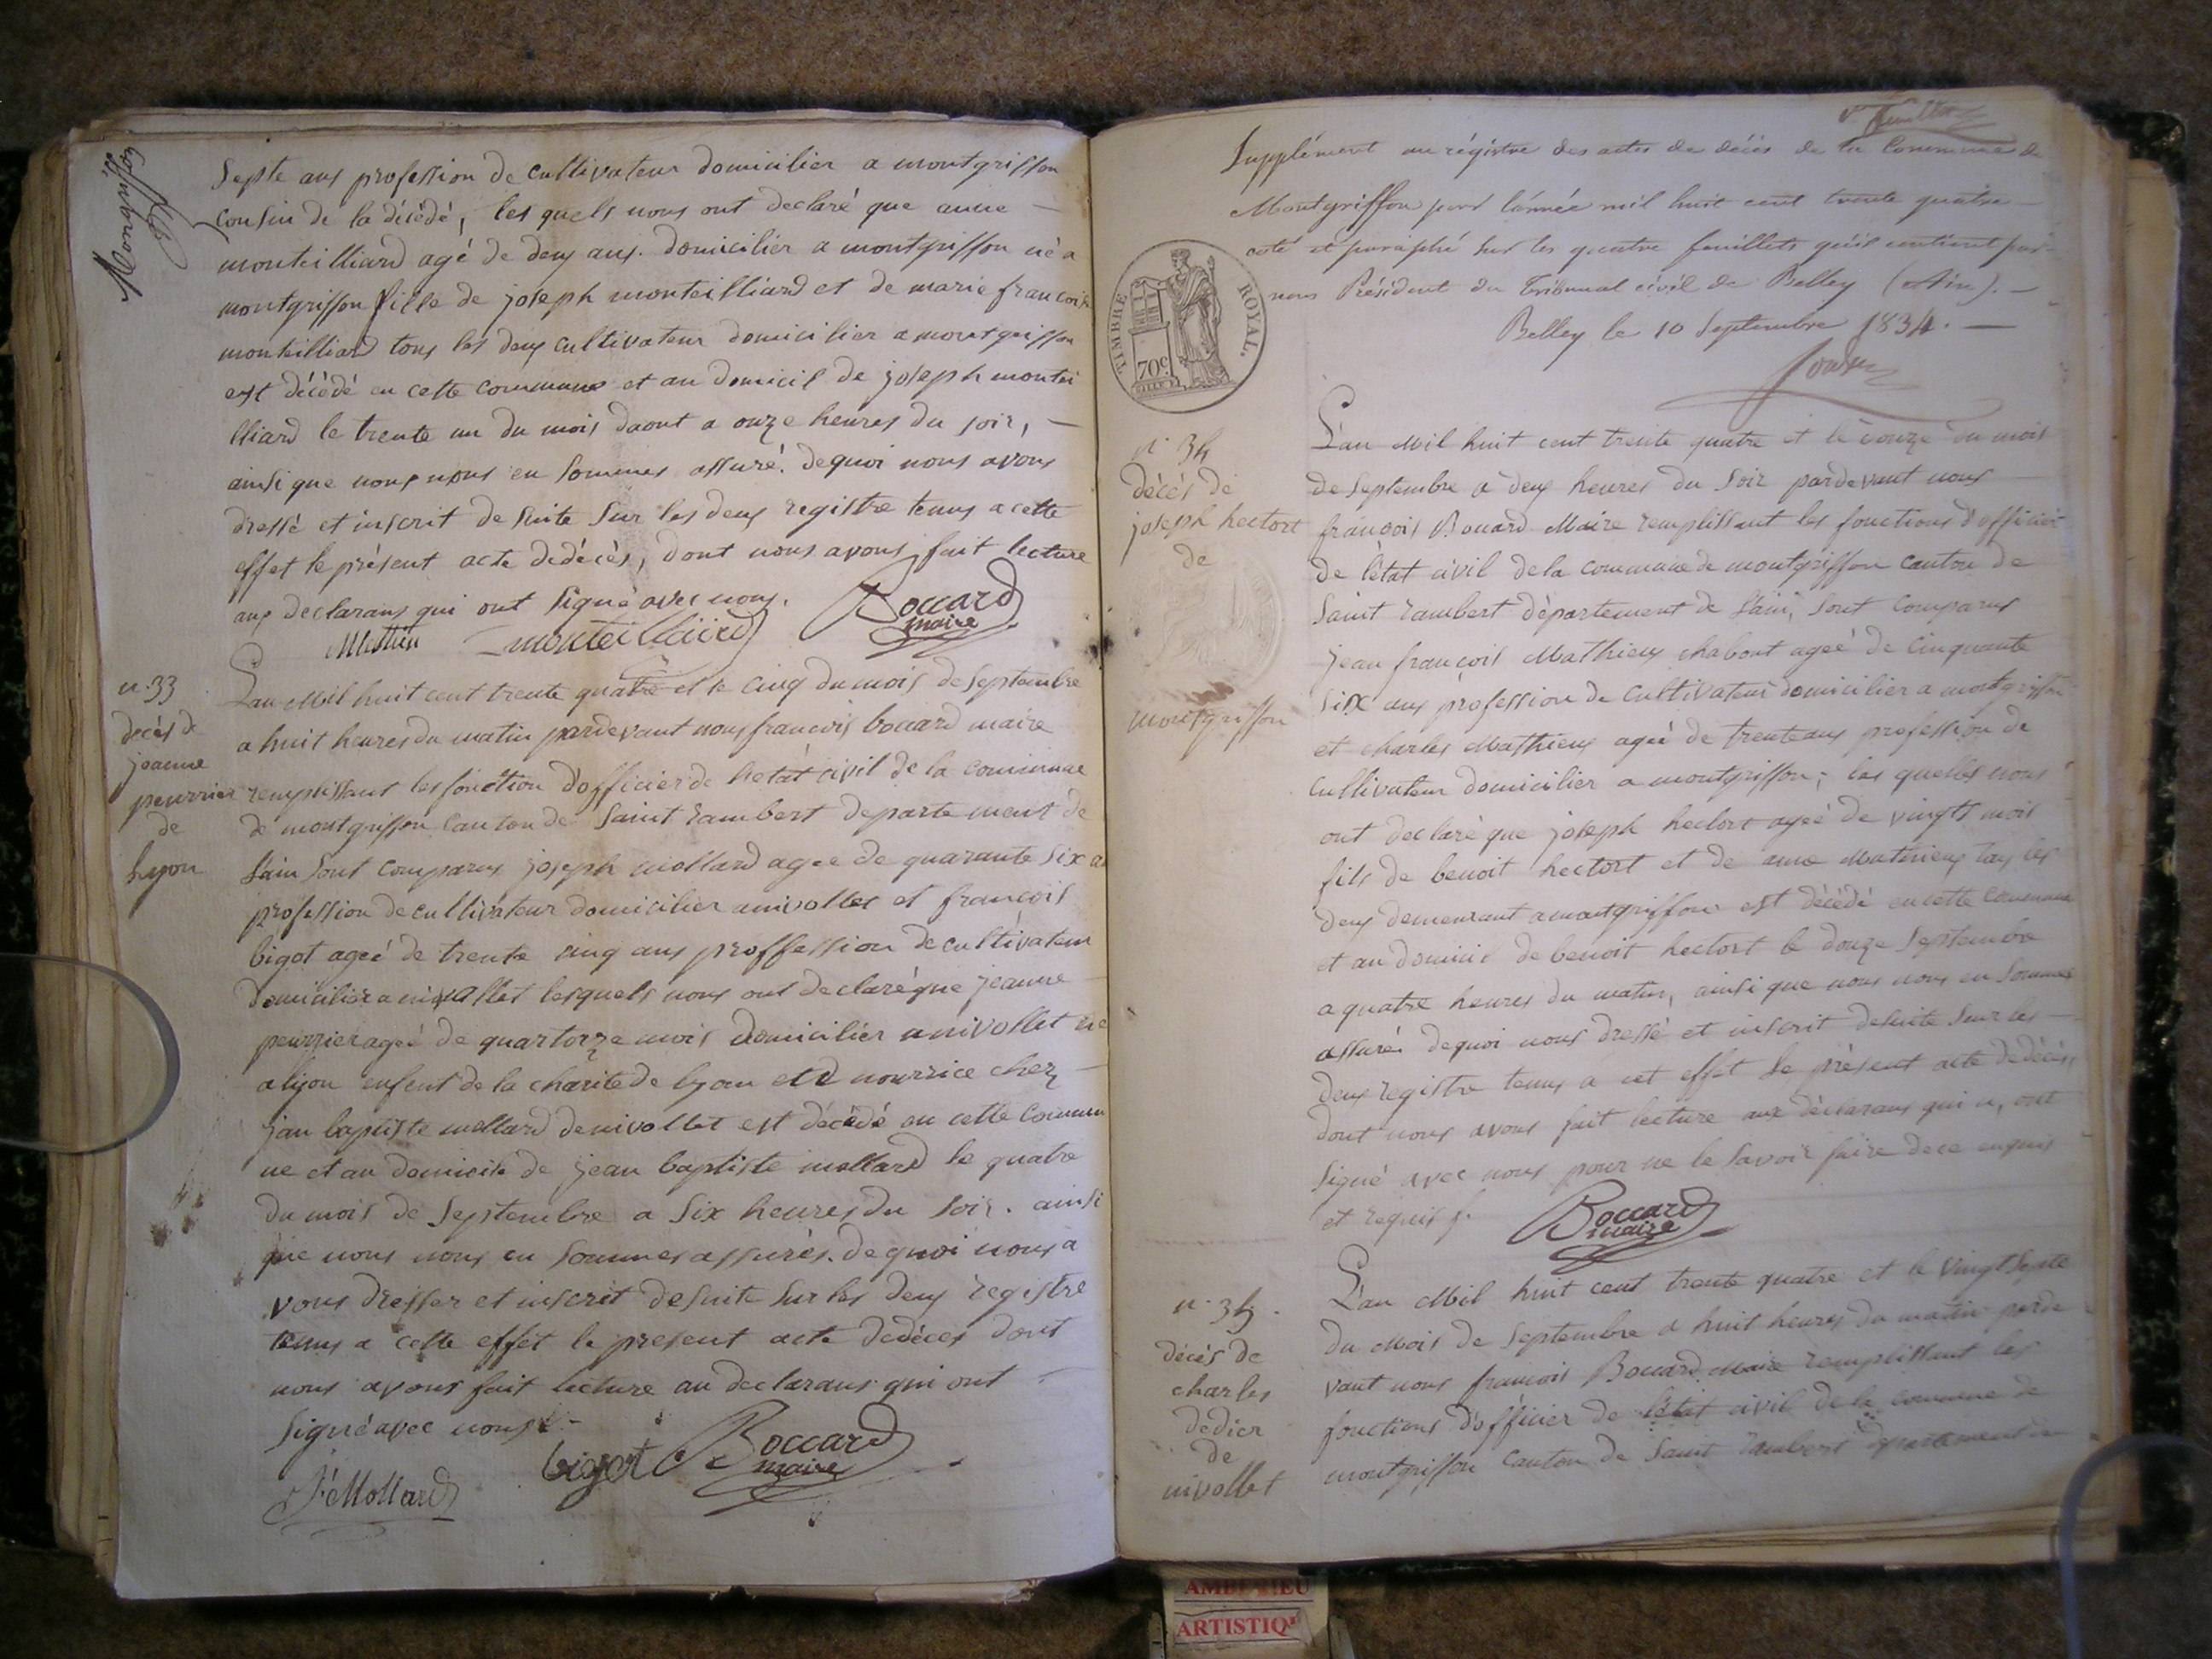 Montgriffon
Septe ans profession de cultivateur domicilier a montgriffon
cousin de la décédé, les quels nous ont declaré que anne —
monteilliard agé de deux ans. domicilier a montgriffon né a
montgriffon fille de joseph monteilliard et de marie francoise
monteilliard tous les deux cultivateur domicilier a montgriffon
est décédé en cette commune et au domicil de joseph montei
lliard le trente un du mois daout a onze heures du soir, —
ainsi que nous nous en sommes assuré. dequoi nous avons
dressé et inscrit de suite sur les deux registre tenus a cette
effet le présent acte dedécès, dont nous avons fait lecture
aux declarans qui ont signé avec nous.
Mathieu monteilliard Boccard
maire
n. 33
decès de
jeanne
peurrier
de
Lyon
L'an Mil huit cent trente quatre et le cinq du mois de septembre
a huit heures du matin pardevant nous francois boccard maire
remplissant les fonction d'officier de l'etat civil de la commune
de montgriffon canton de Saint rambert departement de
l'ain sont comparus joseph mollard agee de quarante six a
profession de cultivateur domicilier a nivollet et francois
bigot ageé de trente cinq ans proffession de cultivateur
domicilier a nivollet lesquels nous ont declaré que jeanne —
peurrier ageé de quartorze mois domicilier a nivollet né
a lyon enfent de la charite de lyon et nourrice chez —
jan baptiste mollard de nivollet est décédé en cette commu
ne et au domicile de jean baptiste mollard le quatre
du mois de septembre a six heures du soir. ainsi
que nous nous en sommes assurés. de quoi nous a
vons dresser et inscrit de suite sur les deux registre
tenus a cette effet le present acte dedéces dont
nous avons fait lecture au declarans qui ont —
signé avec nous. —
J. Mollard bigot Boccard
maire
Supplément au régistre des actes de décès de la Commune de
Montgriffon pour l'année mil huit cent trente quatre —
coté et paraphé sur les quatre feuillets qu'il contient par
nous Président du Tribunal civil de Belley (Ain). —
Belley le 10 Septembre 1834. —
TIMBRE ROYAL.
70c
n. 34
décès de
joseph hectort
de
montgriffon
L'an Mil huit cent trente quatre et le douze du mois
de septembre a deux heures du soir pardevant nous
francois Boccard Maire remplissant les fonctions d'officier
de l'état civil de la commune de montgriffon canton de
Saint rambert département de l'ain, sont comparus
jean francois Mathieux chabout ageé de cinquante
six ans profession de cultivateur domicilier a montgriffon
et charles Mathieux ageé de trente ans profession de
cultivateur domicilier a montgriffon; les quelles nous
ont declaré que joseph hectort ageé de vingts mois
fils de benoit hectort et de anne Mathieux tous les
deux demeurant a montgriffon est décédé en cette commune
et au domicil de benoit hectort le douze septembre
a quatre heures du matin, ainsi que nous nous en sommes
assuré. dequoi nous dressé et inscrit desuite sur les —
deux registre tenus a cet effet le présent acte dedécès,
dont nous avons fait lecture aux déclarans qui n, ont
signé avec nous pour ne le savoir faire dece enquis
et requis f.
Boccard
maire
n. 35.
décès de
charles
dedier
de
nivollet
L'an Mil huit cent trente quatre et le vingt septe
du Mois de septembre a huit heures du matin parde
vant nous francois Boccard Maire remplissant les
fonctions d'officier de l'état civil de la commune de
montgriffon canton de Saint rambert departement de
AMBERIEU
ARTISTIQU